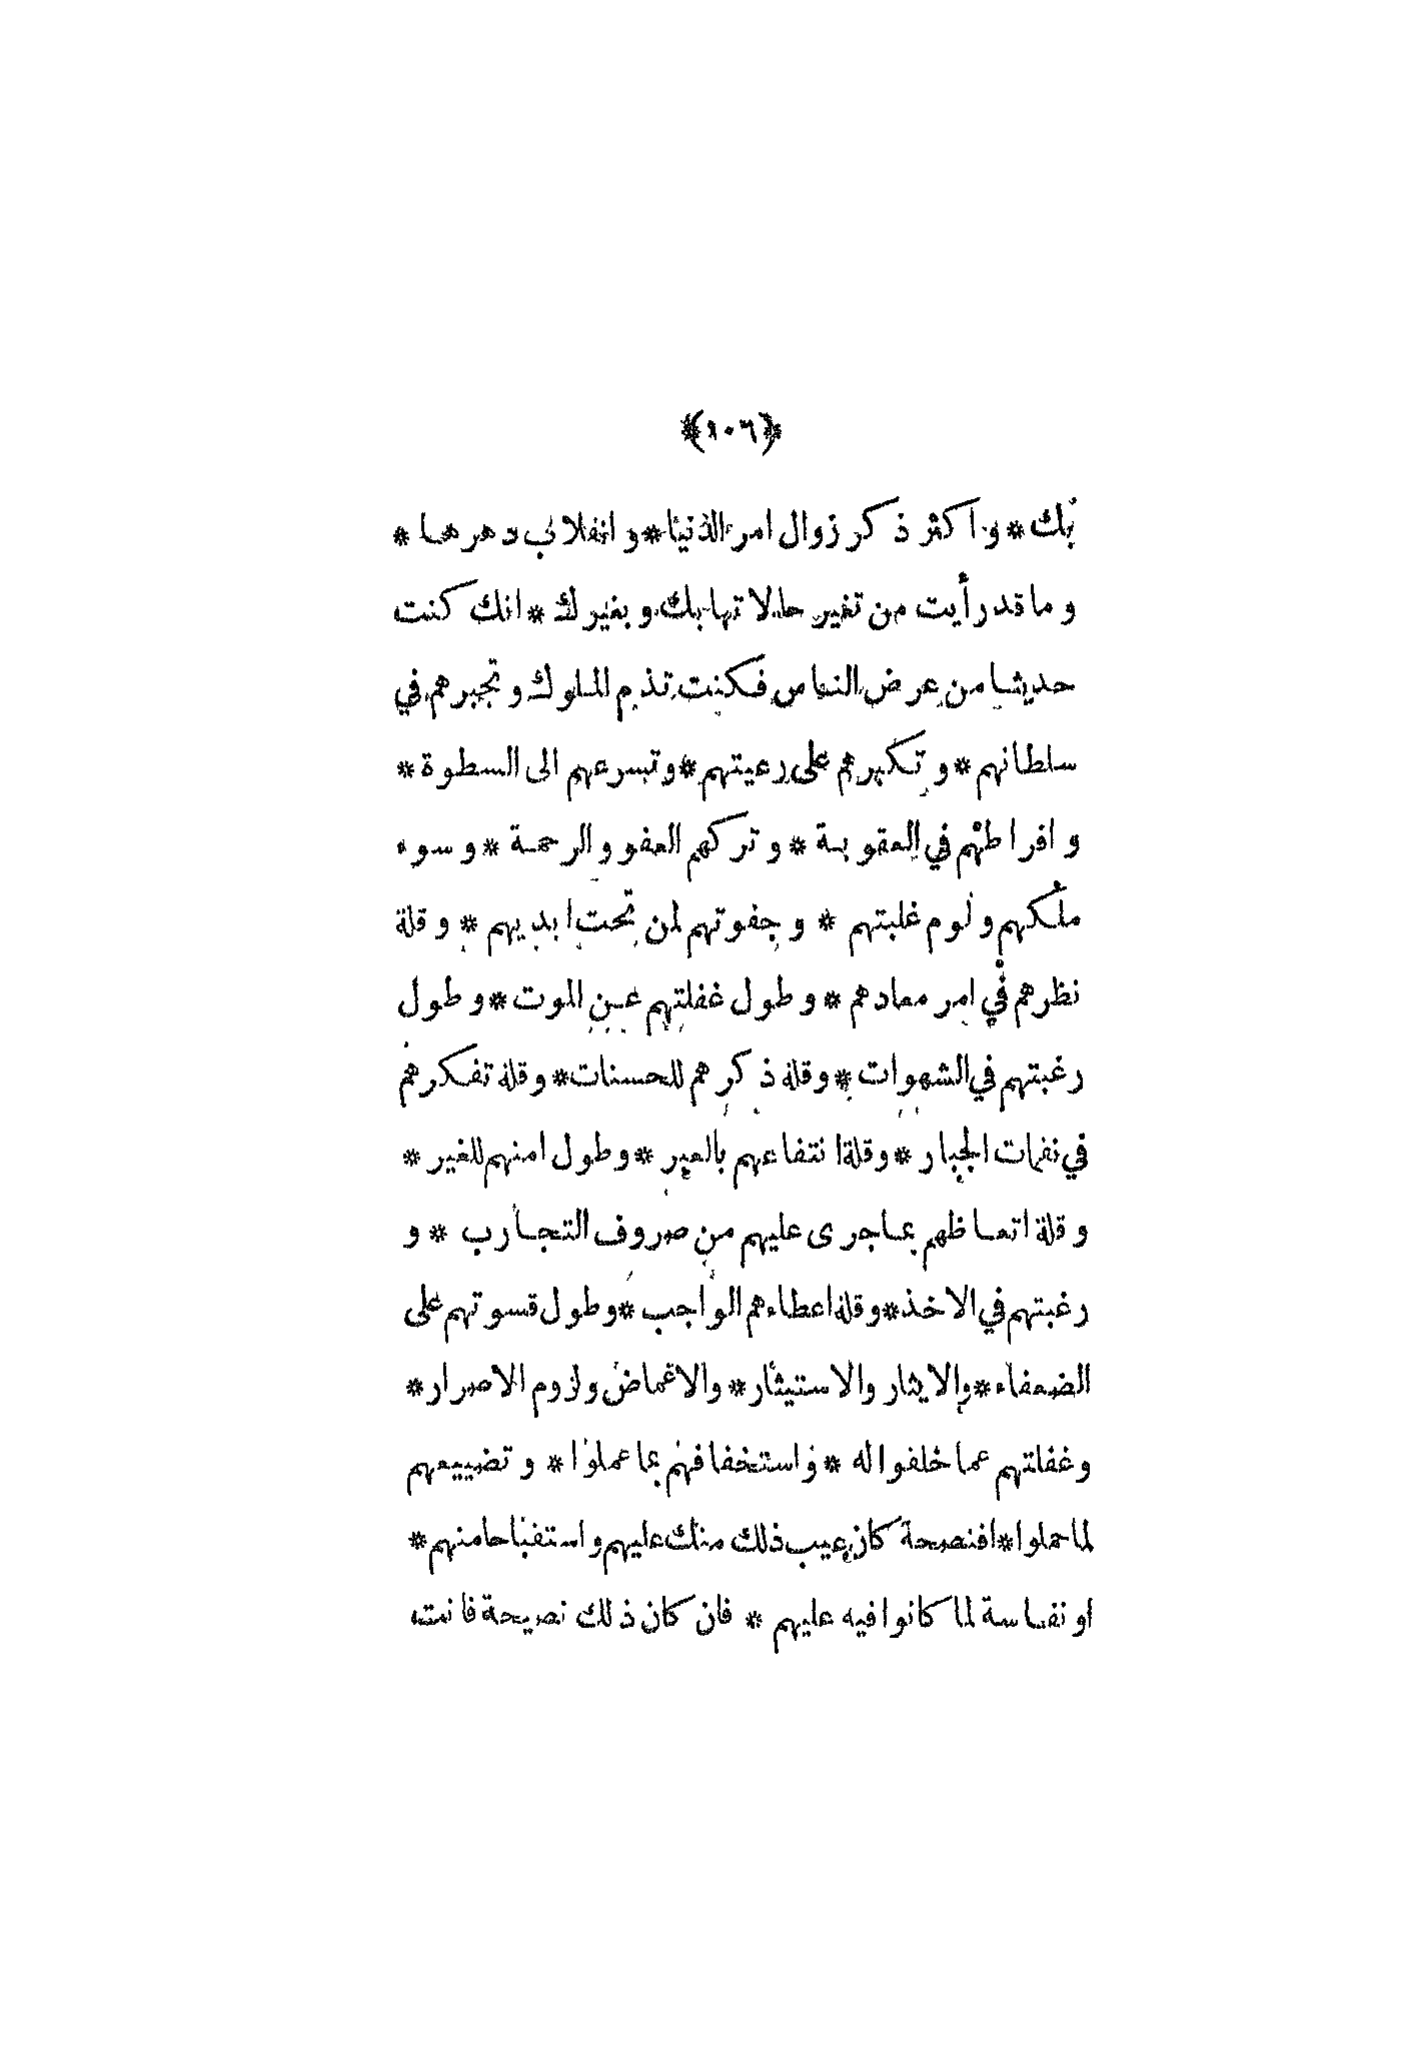 ﴿١٠٦﴾
بك * و اكثر ذكر زوال امر الدنيا * و انقلاب دهرها *
و ما قد رأيت من تغير حالاتها بك و بغيرك * انك كنت
حديثا من عرض الناس فكنت تذم الملوك و تجبرهم في
سلطانهم * و تكبرهم على رعيتهم * و تسرعهم الى السطوة *
و افراطهم في العقوبة * و تركهم العفو و الرحمة * و سوء
ملكهم و لوم غلبتهم * و جفوتهم لمن تحت ايديهم * و قلة
نظرهم في امر معادهم * و طول غفلتهم عن الموت * و طول
رغبتهم في الشهوات * و قلة ذكرهم للحسنات * و قلة تفكرهم
في نقمات الجبار * و قلة انتفاعهم بالعبر * و طول امنهم للغير *
و قلة اتعاظهم بما جرى عليهم من صروف التجارب * و
رغبتهم في الاخذ * و قلة اعطاءهم الواجب * و طول قسوتهم على
الضعفاء * و الايثار و الاستيثار * و الاغماض و لزوم الاصرار *
و غفلتهم عما خلقوا له * و استخفافهم بما عملوا * و تضييعهم
لما حملوا * افنصحة كان عيب ذلك منك عليهم و استقباحا منهم *
او نفاسة لما كانوا فيه عليهم * فان كان ذلك نصيحة فانت